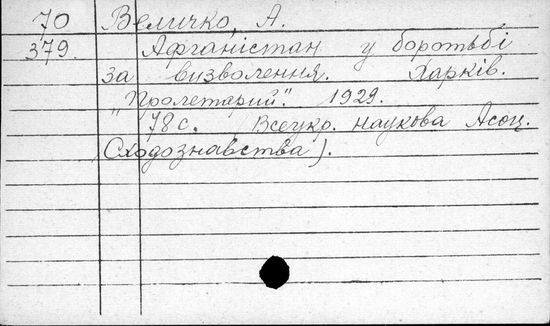 70 Величко, А.
379. Афганістан у боротьбі
за визволення. Харків.
"Пролетарий". 1929.
78 с. Всеукр. наукова Асоц.
Сходознавства).